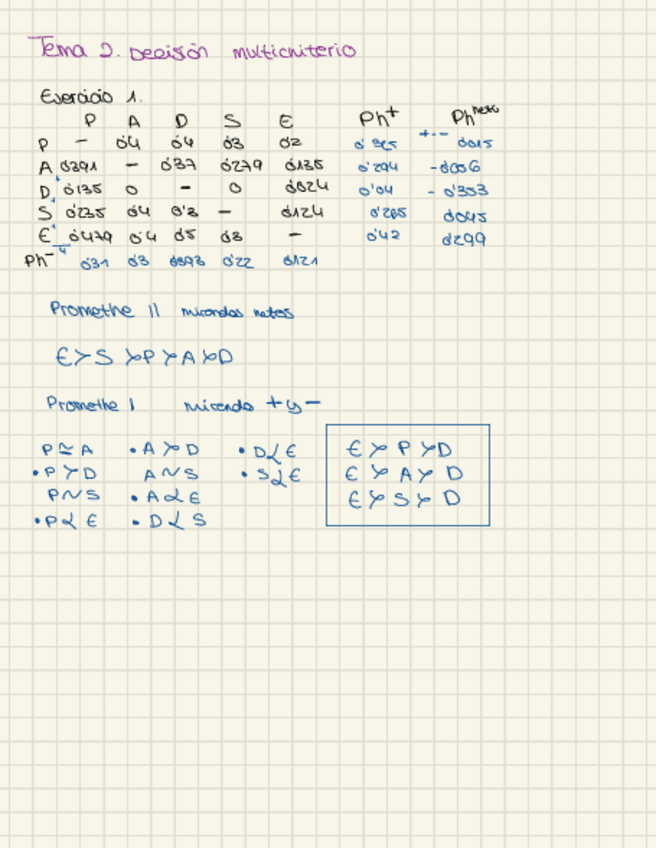 Tema 2. Decisión multicriterio
Ejercicio 1.
P A D S E Ph+ Ph neto
P - 0'4 0'4 0'3 0'2 0'325 +-- 0'015
A 0'391 - 0'37 0'279 0'135 0'294 -0'006
D 0'135 0 - 0 0'024 0'04 -0'353
S 0'235 0'4 0'3 - 0'124 0'265 0'045
E 0'479 0'4 0'5 0'3 - 0'42 0'299
Ph- 0'31 0'3 0'393 0'22 0'121
Promethe II mirando netos
E≻S≻P≻A≻D
Promethe I mirando + y -
P≃A • A≻D • D≺E E≻P≻D
• P≻D A∼S • S≺E E≻A≻D
P∼S • A≺E E≻S≻D
• P≺E • D≺S